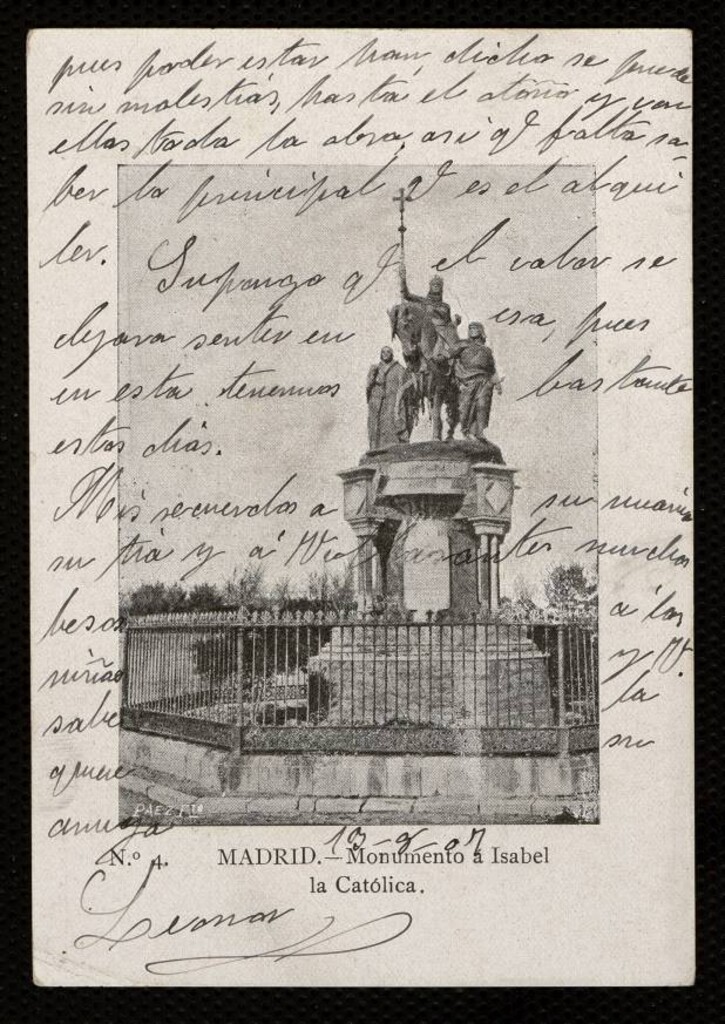 pues poder estar han dicho se puede
sin molestias, hasta el otoño y van
ellas toda la obra, asi qᵉ falta sa
ber lo principal qᵉ es el alqui
ler.
Supongo qᵉ el calor se
dejara sentir en esa, pues
en esta tenemos bastante
estos dias.
Mis recuerdos a su mamá
su tia y á Vˢ mucho
besos á las
niñas y V.
sabe la
quiere su
amiga
13-8-07
PAEZ Fᵗᵒ
N.º 4. MADRID.—Monumento á Isabel
la Católica.
Leonor